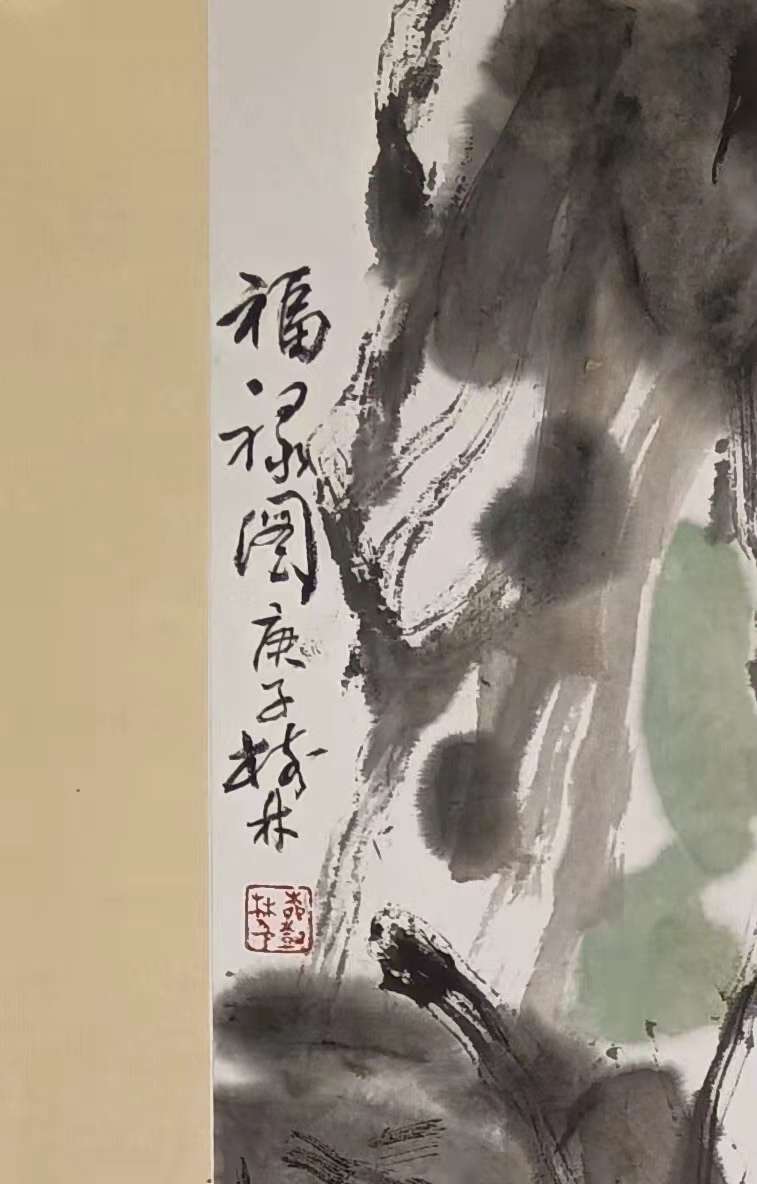 福禄图庚子树林